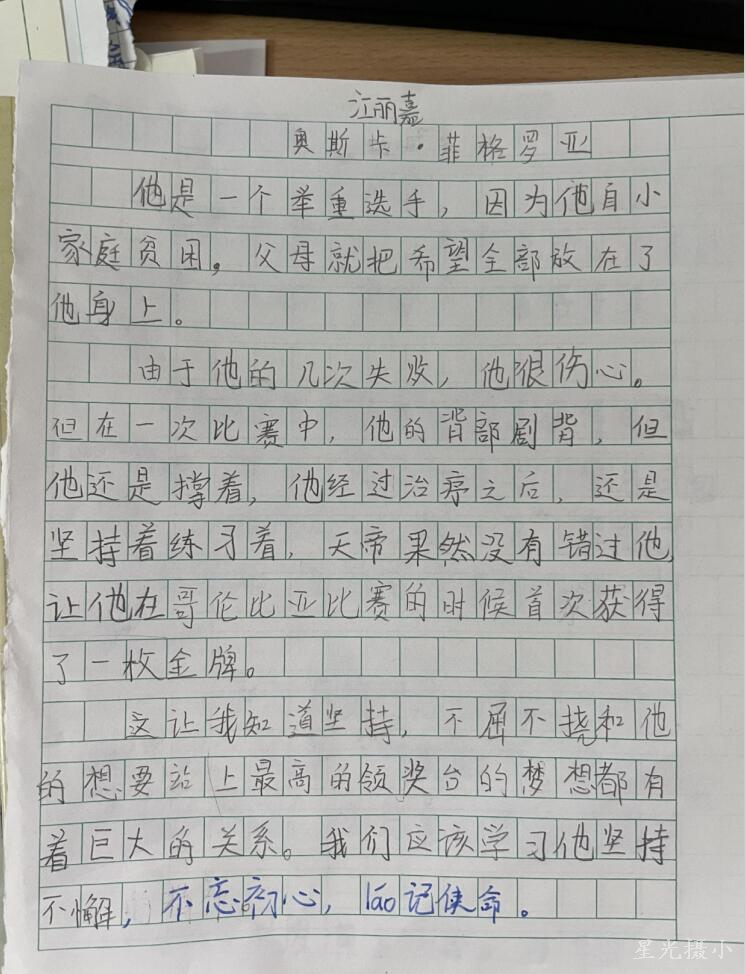 江丽嘉
奥斯卡·菲格罗亚
他是一个举重选手，因为他自小
家庭贫困，父母就把希望全部放在了
他身上。
由于他的几次失败，他很伤心。
但在一次比赛中，他的背部剧背，但
他还是撑着，他经过治疗之后，还是
坚持着练习着，天帝果然没有错过他，
让他在哥伦比亚比赛的时候首次获得
了一枚金牌。
这让我知道坚持，不屈不挠和他
的想要站上最高的领奖台的梦想都有
着巨大的关系。我们应该学习他坚持
不懈，不忘初心，lao记使命。
星光摄小